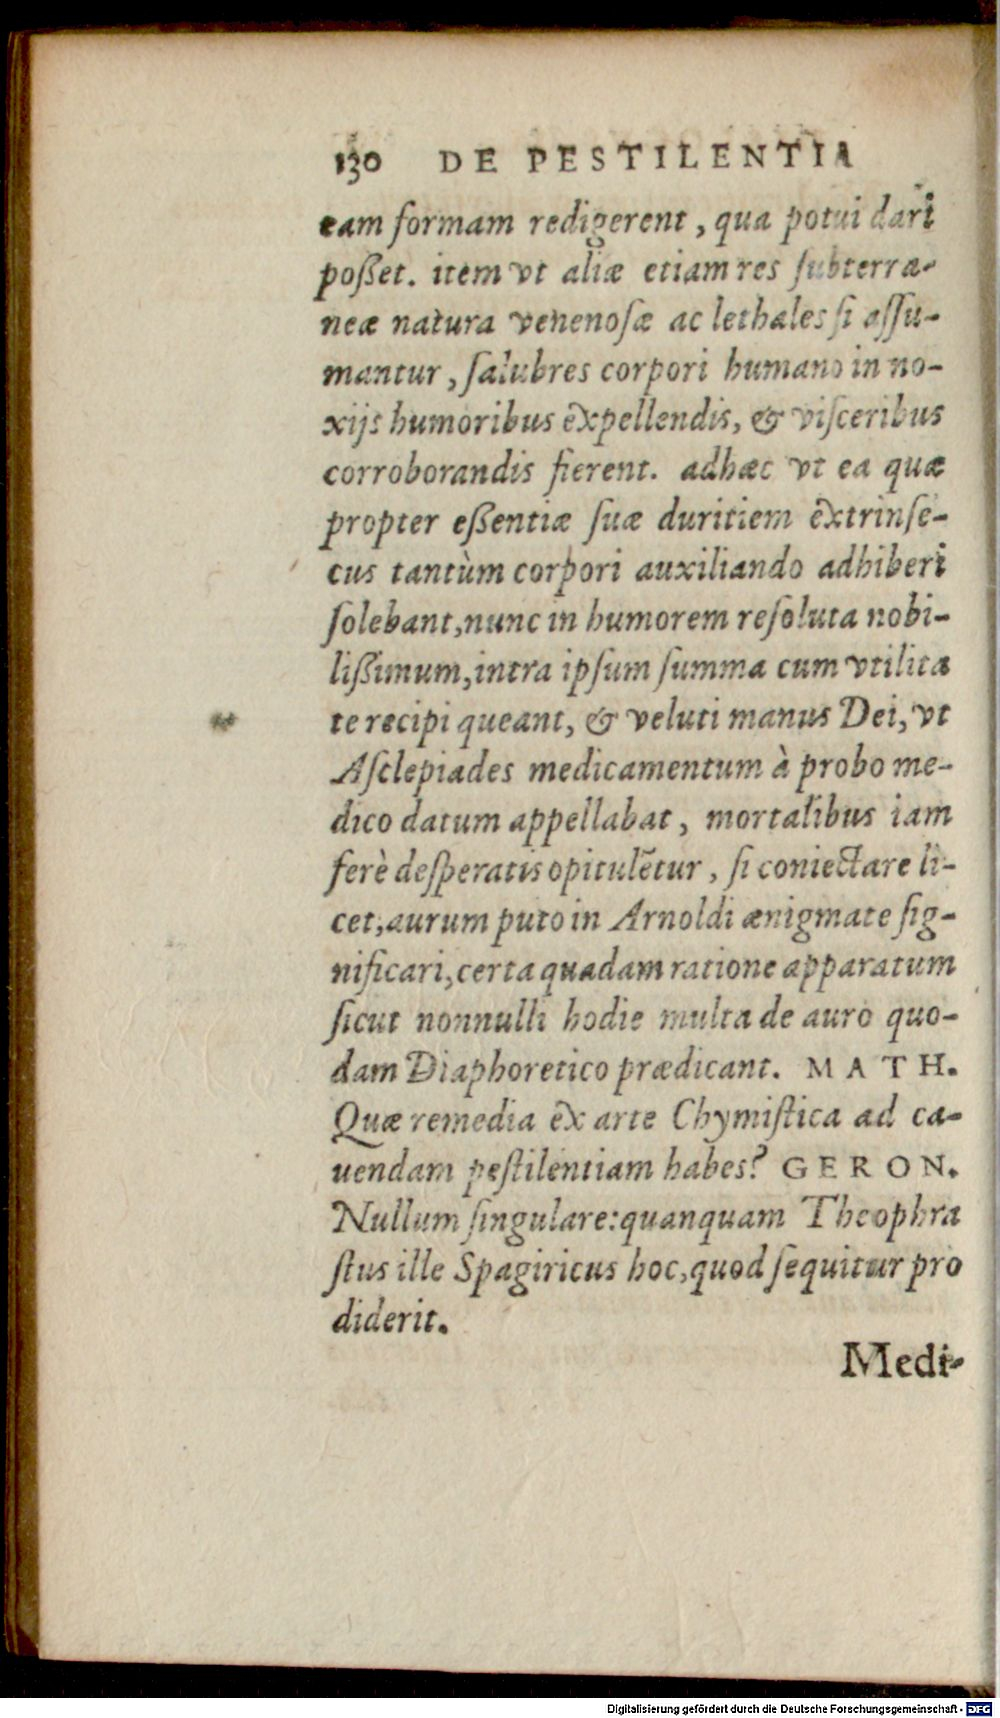 130 DE PESTILENTIA
eam formam redigerent, qua potui dari
poßet. item vt aliæ etiam res ſubterra-
neæ natura venenoſæ ac lethales ſi aſſu-
mantur, ſalubres corpori humano in no-
xijs humoribus expellendis, & viſceribus
corroborandis fierent. adhæc vt ea quæ
propter eßentiæ ſuæ duritiem extrinſe-
cus tantùm corpori auxiliando adhiberi
ſolebant, nunc in humorem reſoluta nobi-
lißimum, intra ipſum ſumma cum vtilita
te recipi queant, & veluti manus Dei, vt
Aſclepiades medicamentum à probo me-
dico datum appellabat, mortalibus iam
ferè deſperatis opitulẽtur, ſi coniectare li-
cet, aurum puto in Arnoldi ænigmate ſig-
nificari, certa quadam ratione apparatum
ſicut nonnulli hodie multa de auro quo-
dam Diaphoretico prædicant. MATH.
Quæ remedia ex arte Chymiſtica ad ca-
uendam peſtilentiam habes? GERON.
Nullum ſingulare: quanquam Theophra
ſtus ille Spagiricus hoc, quod ſequitur pro
diderit.
Medi-
Digitalisierung gefördert durch die Deutsche Forschungsgemeinschaft - DFG